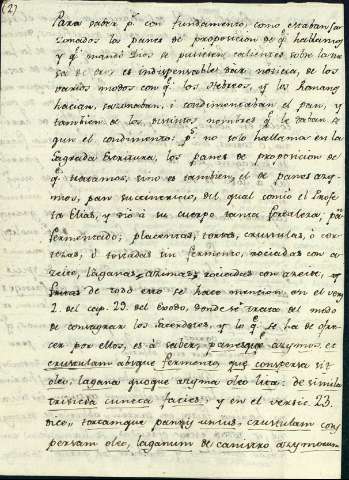 (2)
Para saber p.r con fundamento, como estaban sa-
zonados los panes de proposicion de q.e hallamos
y q.e mandó Dios se pusiesen calientes sobre la me-
sa de oro es indispensable dar noticia, de los
varios modos con q.e los Hebreos, y los
hacian, sazonaban, i condimentaban el pan, y
tambien de los distintos nombres q.e le daban se-
gun el condimento: p.r no solo hallamos en la
Sagrada Escritura, los panes de proposicion de
q.e tratamos, sino es tambien, el de panes azy-
mos, pan succinericio, del qual comió el Profe-
ta Elias, y dió á su cuerpo tanta fortaleza, pan
fermentado; placentas, tortas, crustulas, ó cor-
tezas, ó tostadas sin fermento, rociadas con a-
zeite, laganas, azimas rociadas con azeite, y
fritas de todo esto se hace mencion en el vers.
2. del cap. 29. del Exodo, donde se trata del modo
de consagrar los sacerdotes, y lo q.e se ha de ofre-
cer por ellos, es á saber, panesque azymos, et
crustulam absque fermento, que conspersa sit
oleo, lagana quoque azyma oleo lita: de simila
triticea cuncta facies; y en el versic. 23.
dice,, tortamque panis unius, crustulam cons-
persam oleo, laganum de canistro azymorum